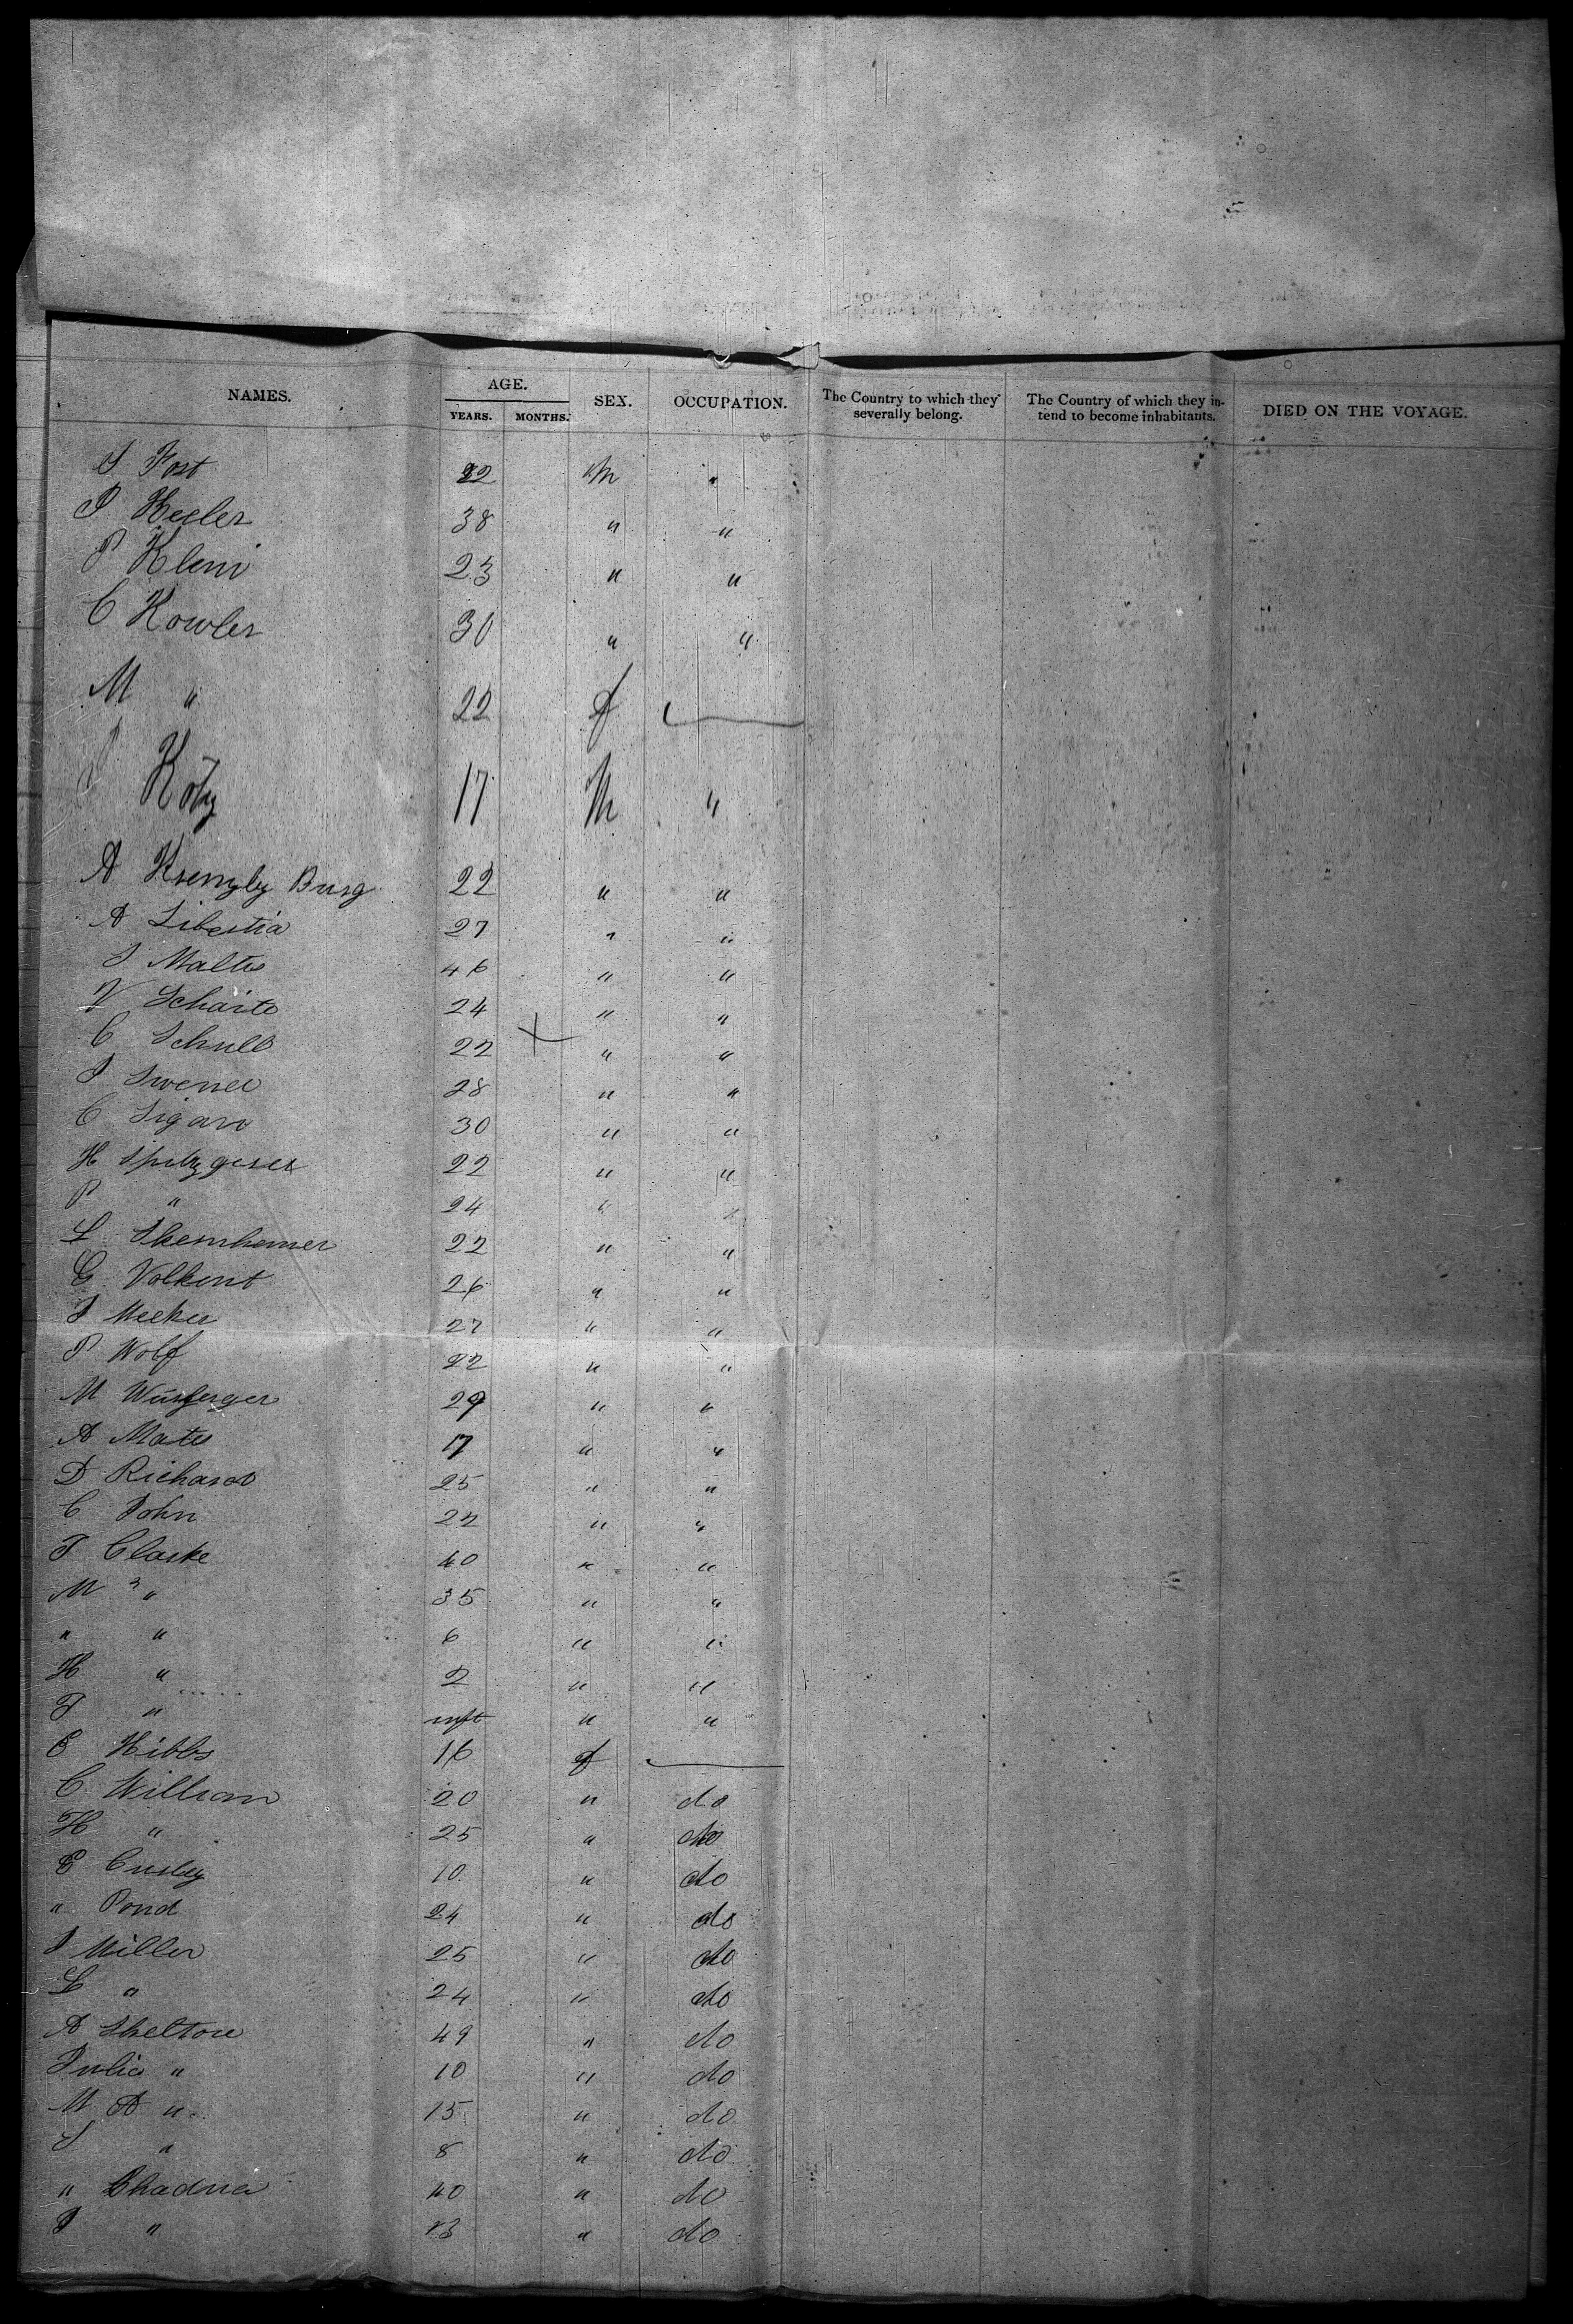 NAMES. AGE. SEX. OCCUPATION. The Country to which they severally belong. The Country of which they intend to become inhabitants. DIED ON THE VOYAGE.
YEARS. MONTHS.
S Fost 22 M "
P Heeler 38 " "
P Kleni 23 " "
C Kowler 30 " "
M " 22 f
Koty 17 M "
A Burg 22 " "
A Libertia 27 " "
J Maltes 46 " "
V 24 " "
C Schull 22 " "
J 28 " "
C Sigaro 30 " "
H 22 " "
P " 24 " "
L 22 " "
G Volkent 26 " "
J Meeker 27 " "
P Wolf 22 " "
M 29 " "
A Mates 17 " "
D Richard 25 " "
C John 22 " "
T Clarke 40 " "
M " 35 " "
" " 6 " "
H " 2 " "
T " inft " "
E Hibbs 16 f
C William 20 " do
H " 25 " do
E 10 " do
" Pond 24 " do
J Miller 25 " do
L " 24 " do
A Shelton 49 " do
Julia " 10 " do
M A " 15 " do
S " 8 " do
" 40 " do
J " 13 " do